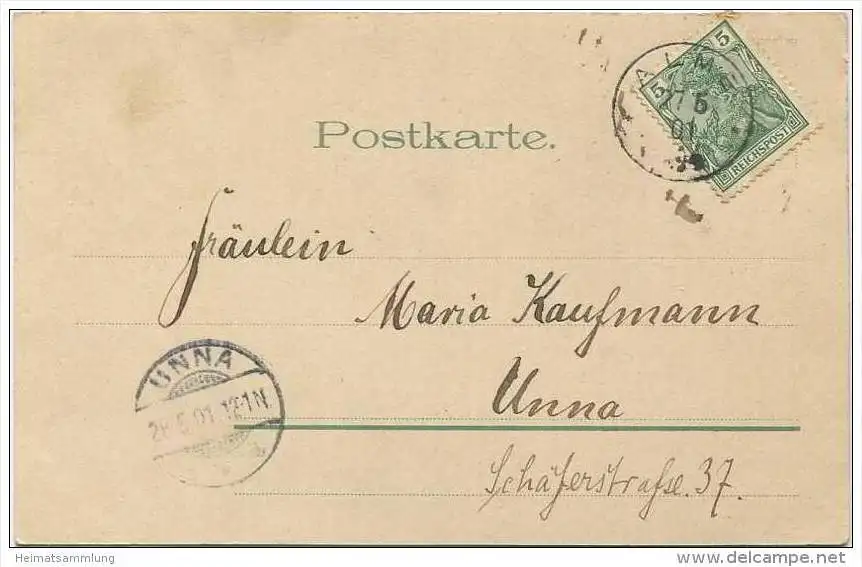 Postkarte.
5
5
REICHSPOST
27 5
01
Fräulein
Maria Kaufmann
Unna
Schäferstraße. 37.
UNNA
5 01 12-1N.
Heimatsammlung
www.delcampe.net